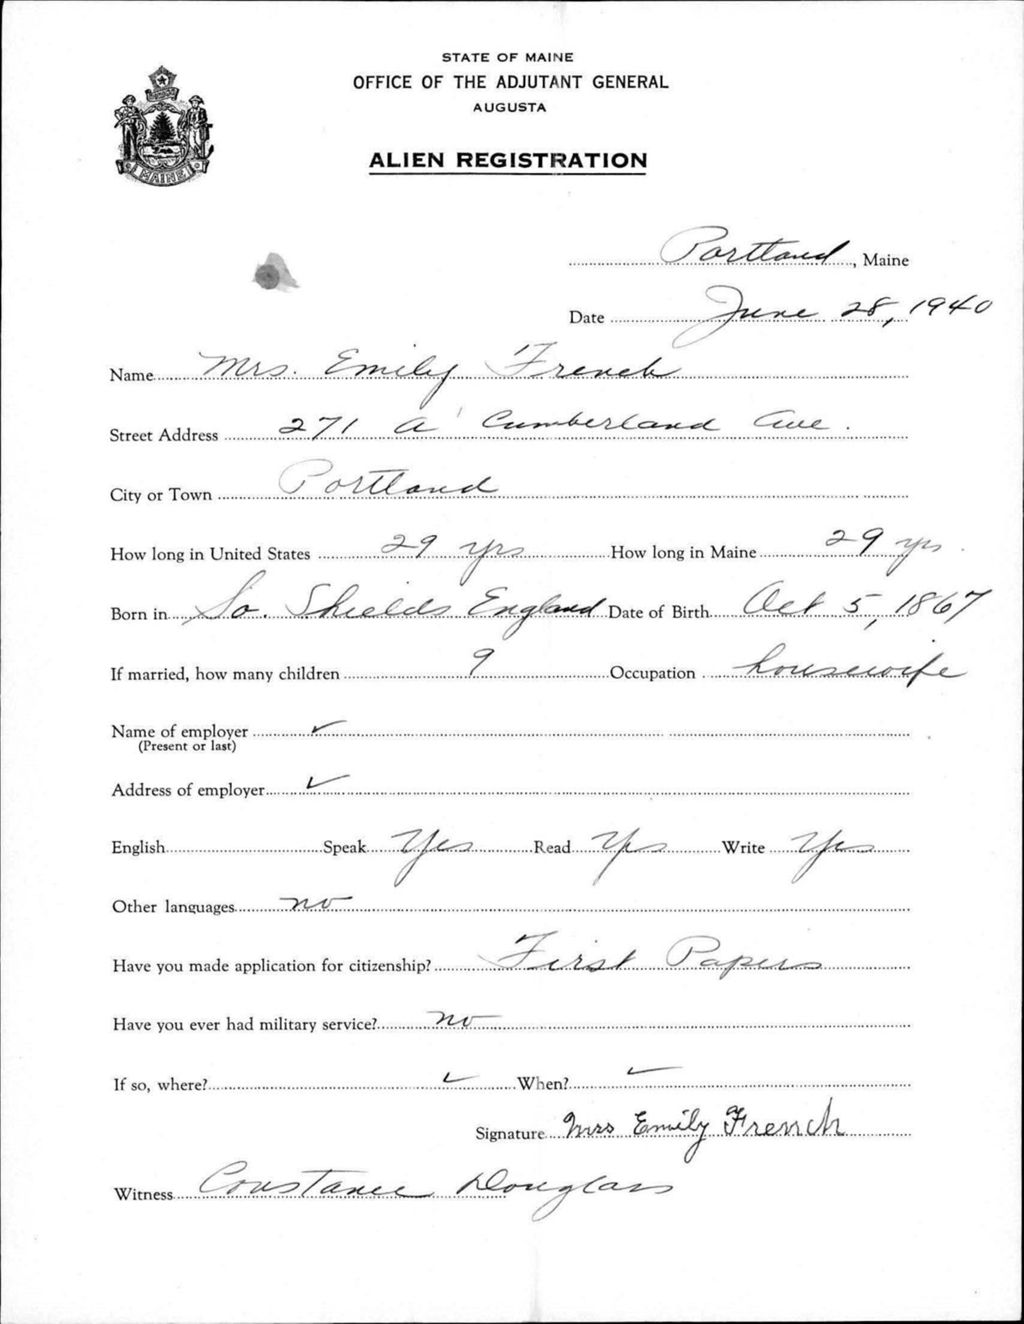 STATE OF MAINE
OFFICE OF THE ADJUTANT GENERAL
AUGUSTA
ALIEN REGISTRATION
MAINE
Portland, Maine
Date June 28, 1940
Name Mrs. Emily French
Street Address 271 A Cumberland Ave.
City or Town Portland
How long in United States 29 yrs How long in Maine 29 yrs.
Born in So. Shields England Date of Birth Oct 5, 1867
If married, how many children 9 Occupation housewife
Name of employer ✓
(Present or last)
Address of employer ✓
English Speak Yes Read Yes Write Yes
Other languages no
Have you made application for citizenship? First Papers
Have you ever had military service? no
If so, where? ✓ When? ✓
Signature Mrs Emily French
Witness Constance Douglass